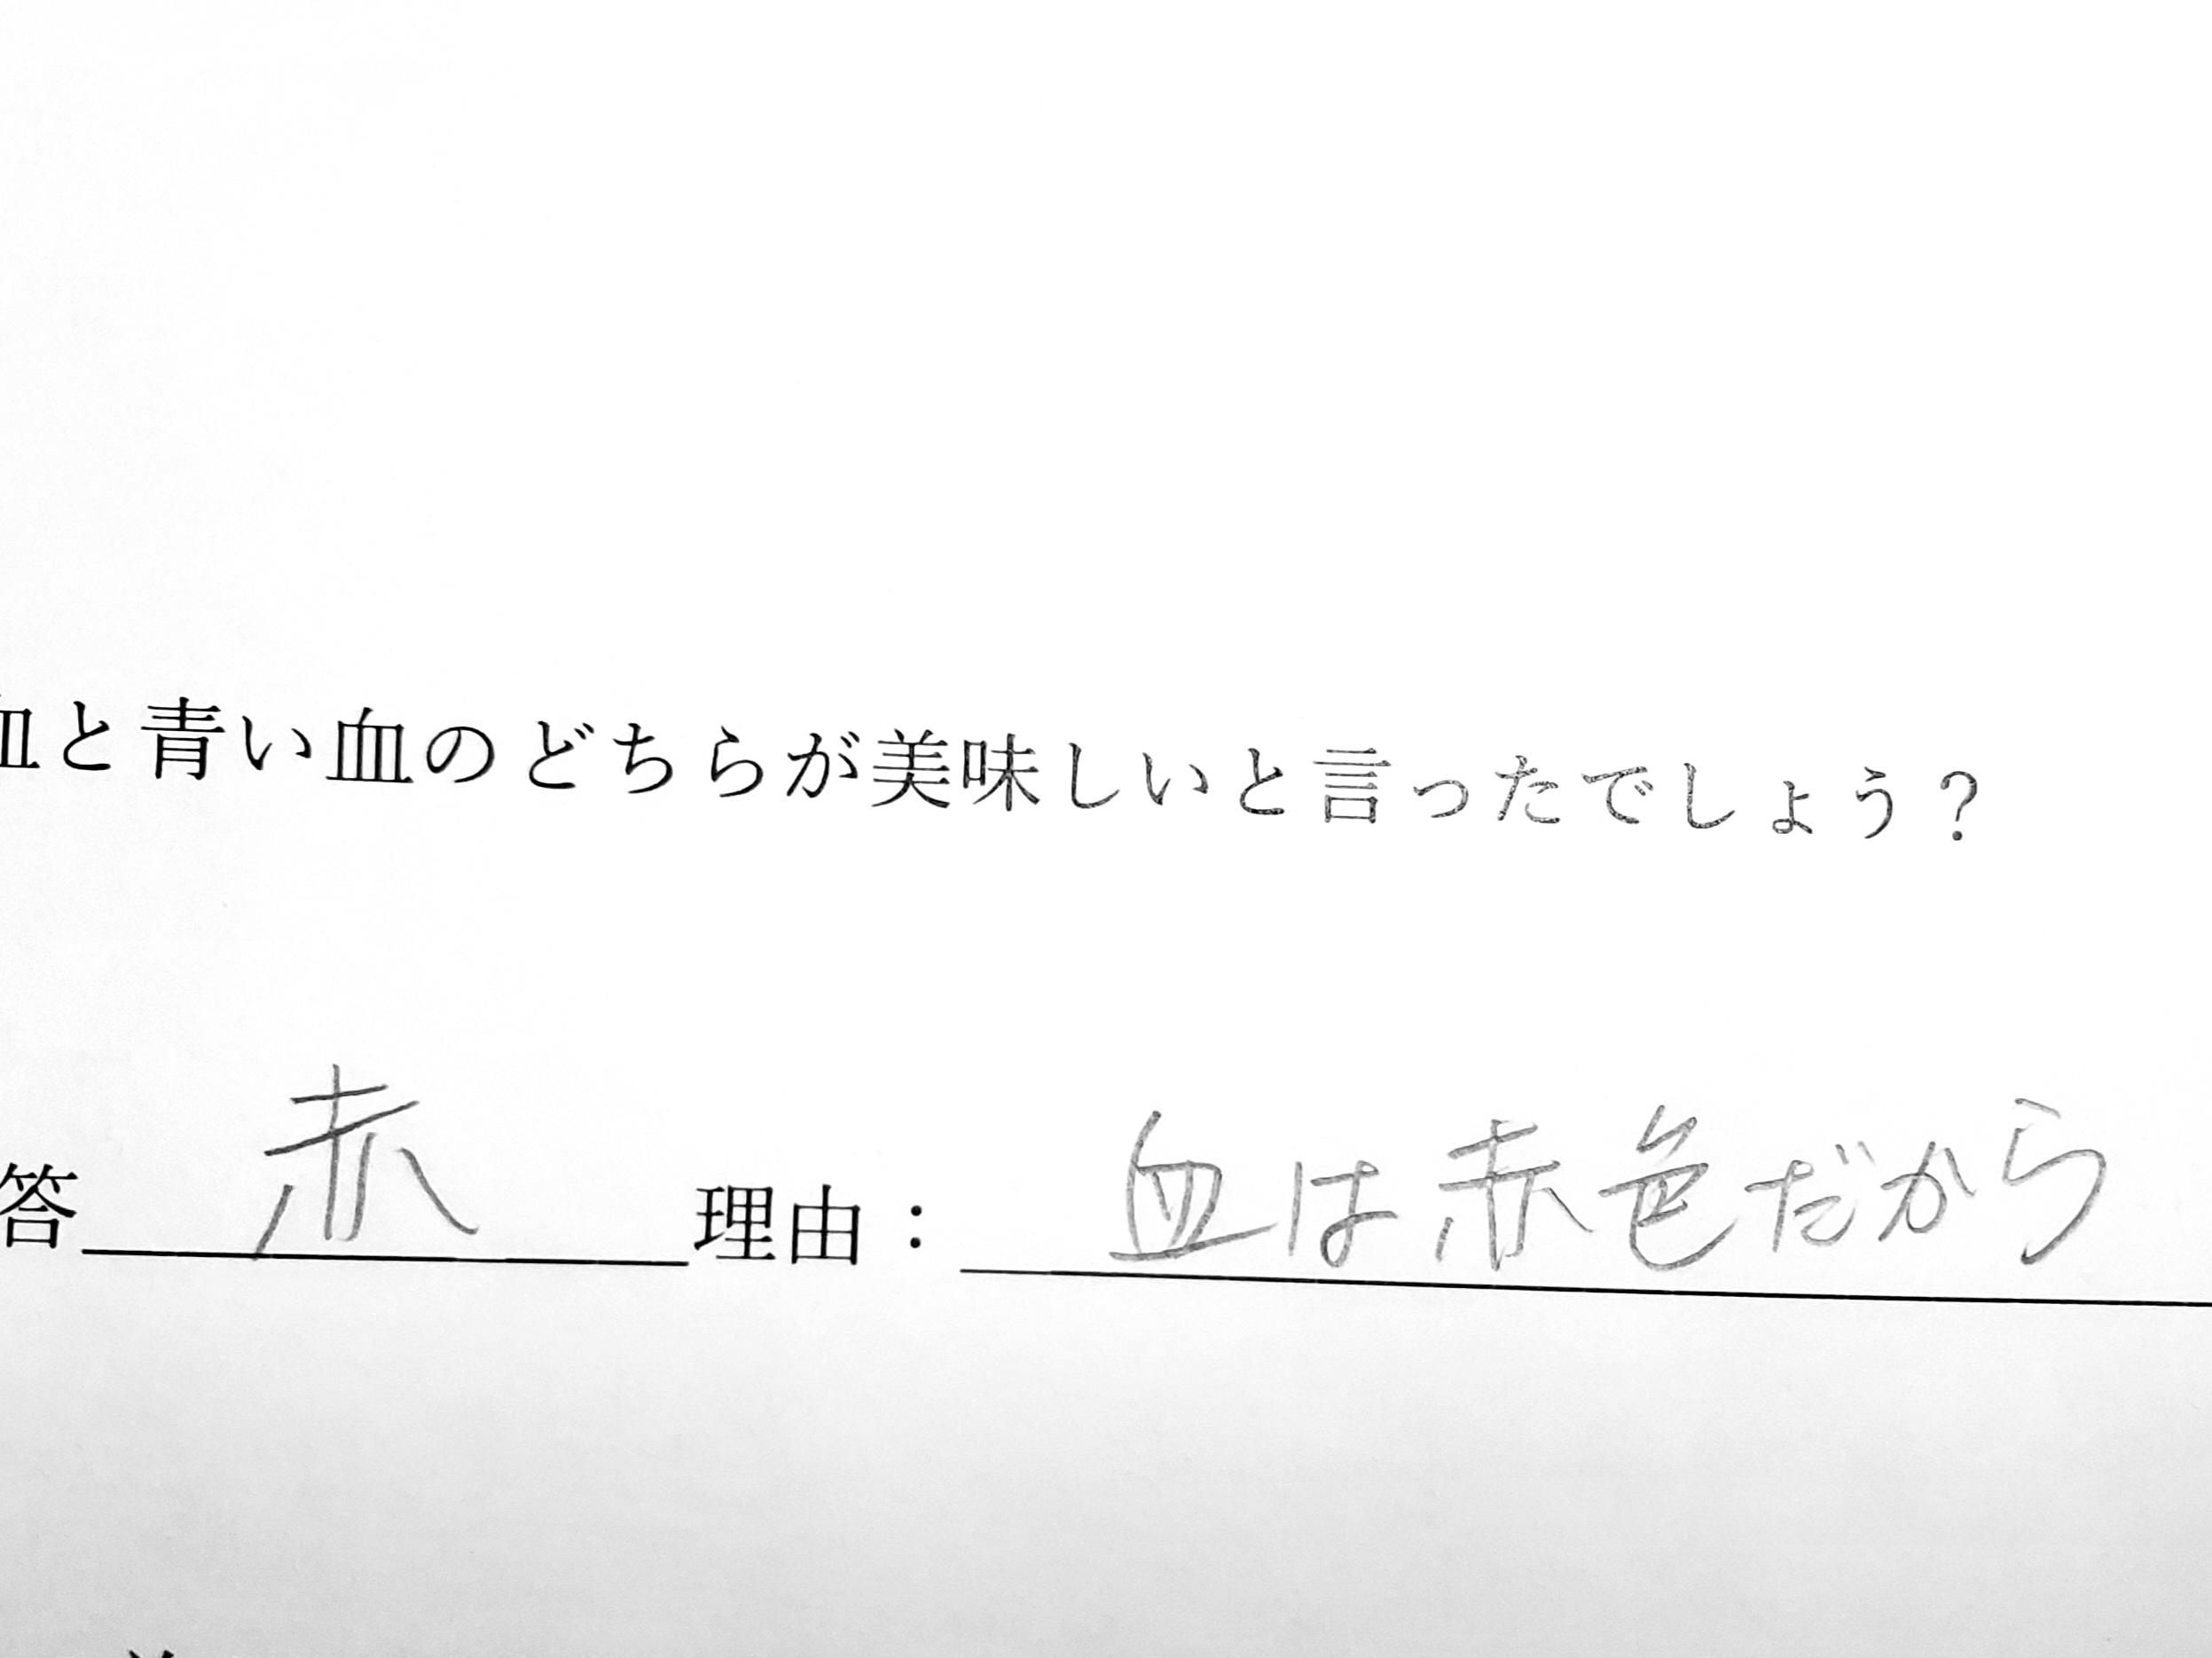 血と青い血のどちらが美味しいと言ったでしょう？
答 赤 理由： 血は赤色だから